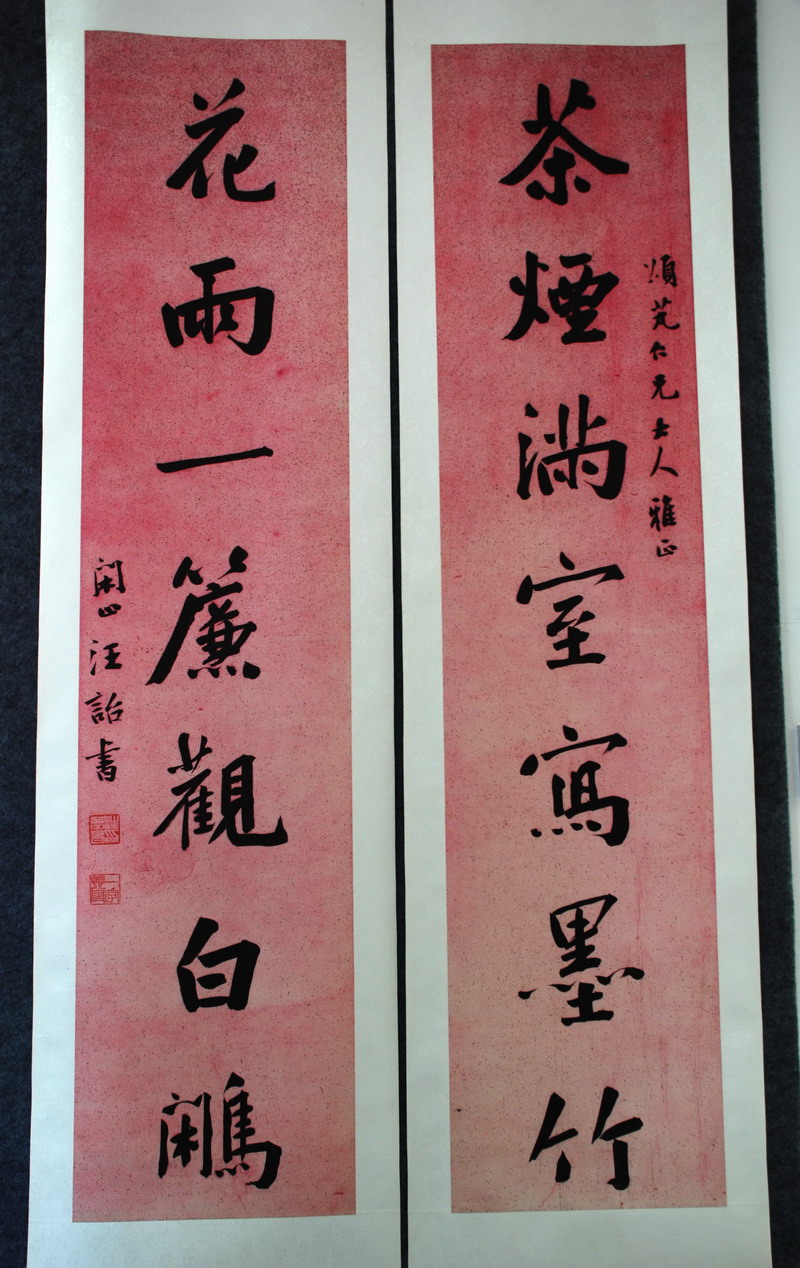 茶煙滿室寫墨竹
頌芫仁兄大人雅正
花雨一簾觀白鷴
閑止汪詒書